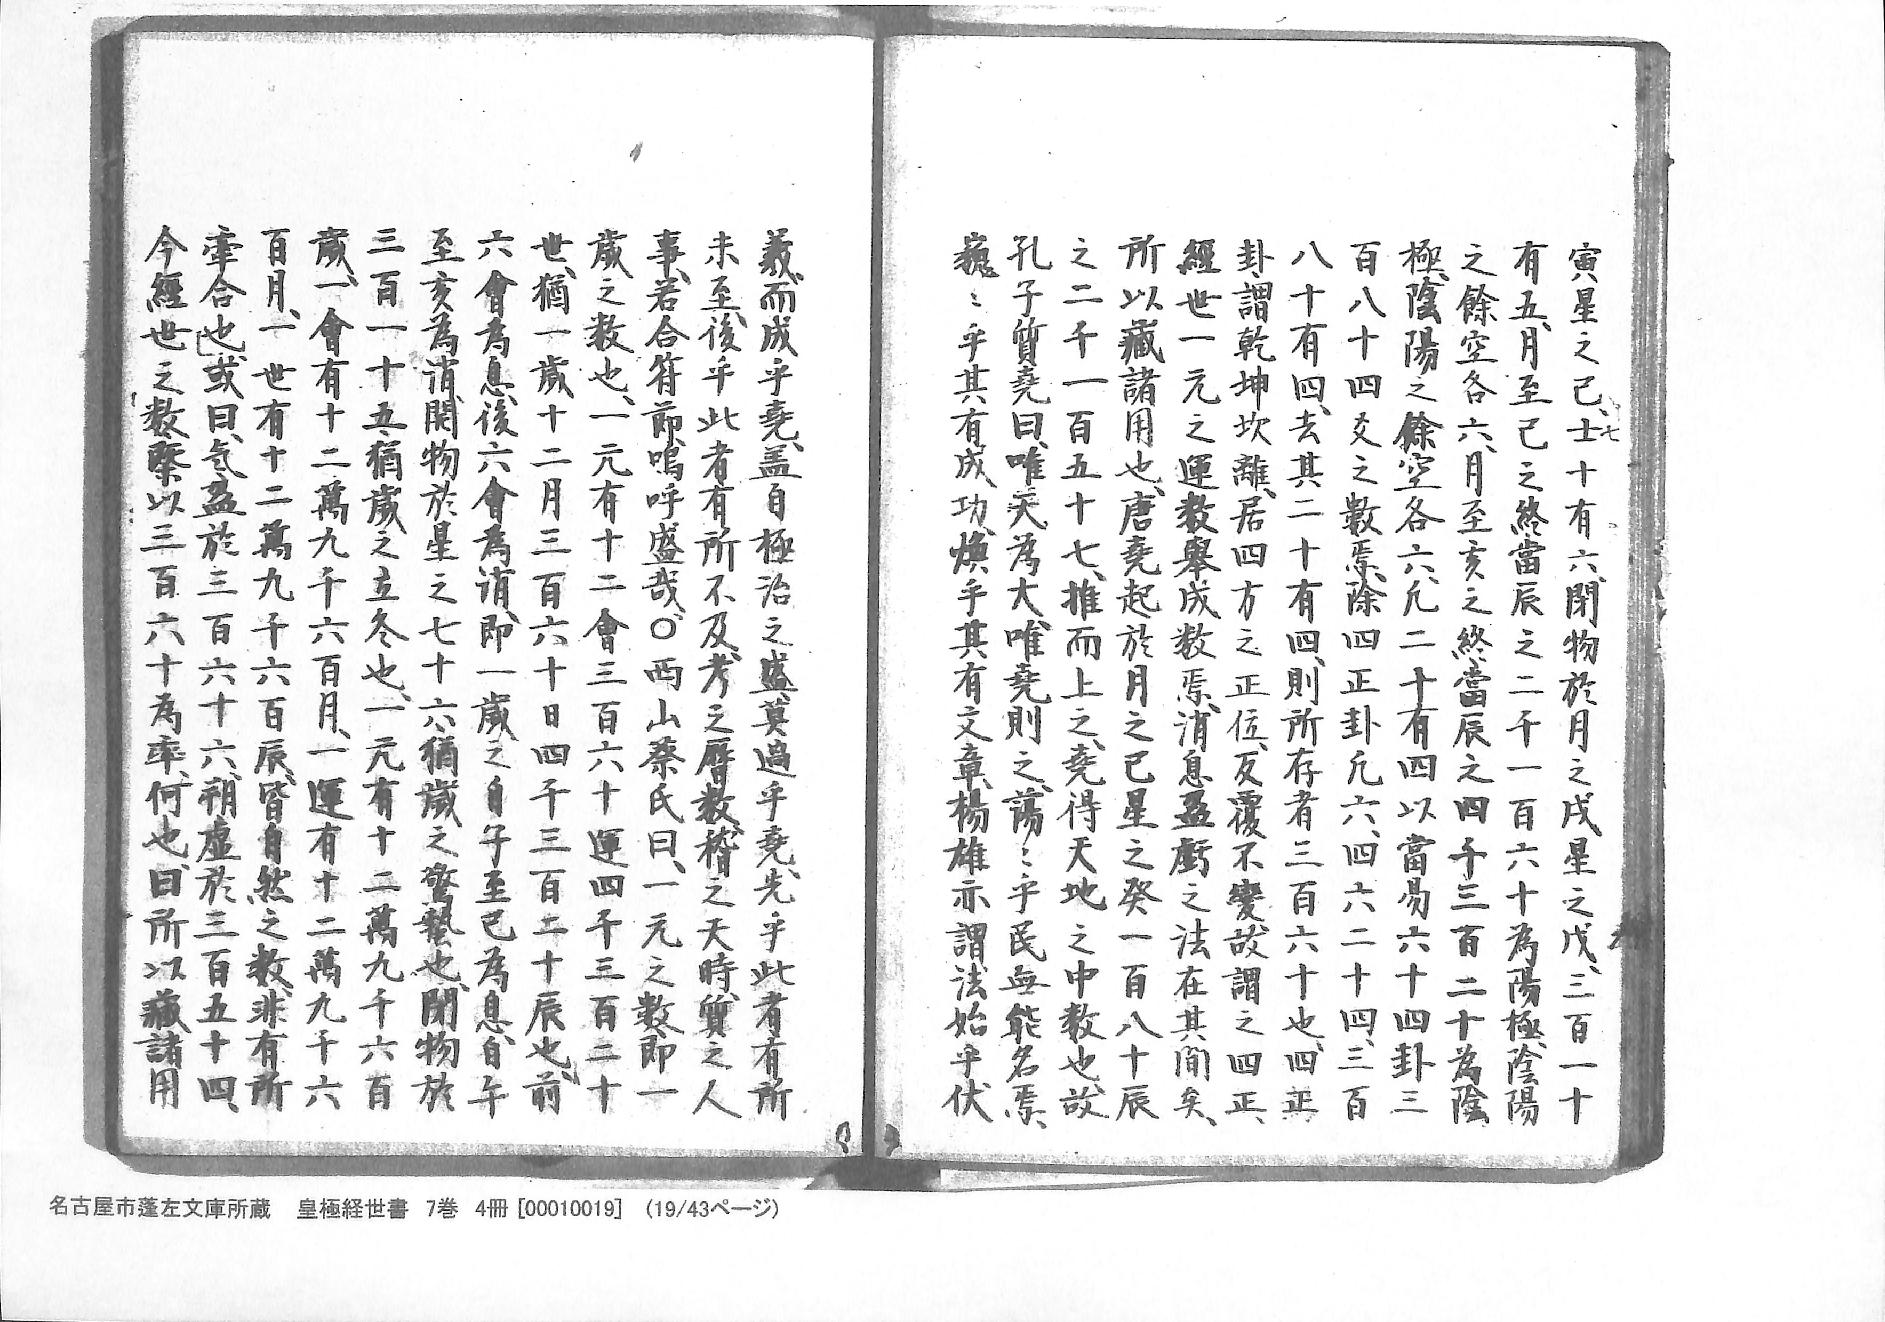 寅星之己、士十有六、閉物於月之戌星之戊、三百一十
七
有五、月至巳之終當辰之二千一百六十為陽極、陰陽
之餘空各六、月至亥之終當辰之四千三百二十為陰
極、陰陽之餘空各六、凢二十有四以當易六十四卦三
百八十四爻之數焉、除四正卦凢六、四六二十四、三百
八十有四、去其二十有四、則所存者三百六十也、四正
卦、謂乾坤坎離、居四方之正位、反覆不變、故謂之四正、
經世一元之運數舉成数焉、消息盈虧之法在其間矣、
所以藏諸用也、唐堯起於月之巳星之癸一百八十辰
之二千一百五十七、推而上之、堯得天地之中数也、故
孔子質堯曰、唯天為大、唯堯則之、蕩〻乎民無能名焉、
巍〻乎其有成功、煥乎其有文章、楊雄亦謂法始乎伏
羲、而成乎堯、盖自極治之盛、莫過乎堯、先乎此者有所
未至、後乎此者有所不及、考之曆数、稽之天時、質之人
事、若合符節、嗚呼盛哉、○西山蔡氏曰、一元之數、即一
歲之数也、一元有十二會三百六十運四千三百二十
世、猶一歲十二月三百六十日四千三百二十辰也、前
六會為息、後六會為消、即一歲之自子至巳為息、自午
至亥為消、開物於星之七十六、猶歲之驚蟄也、閉物於
三百一十五、猶歲之立冬也、一元有十二萬九千六百
歲、一會有十二萬九千六百月、一運有十二萬九千六
百月、一世有十二萬九千六百辰、皆自然之数、非有所
牽合也、或曰、气盈於三百六十六、朔虛於三百五十四、
今經世之数槩以三百六十為率、何也、曰所以藏諸用
名古屋市蓬左文庫所蔵　皇極経世書　7巻　4冊 [00010019]　(19/43ページ)